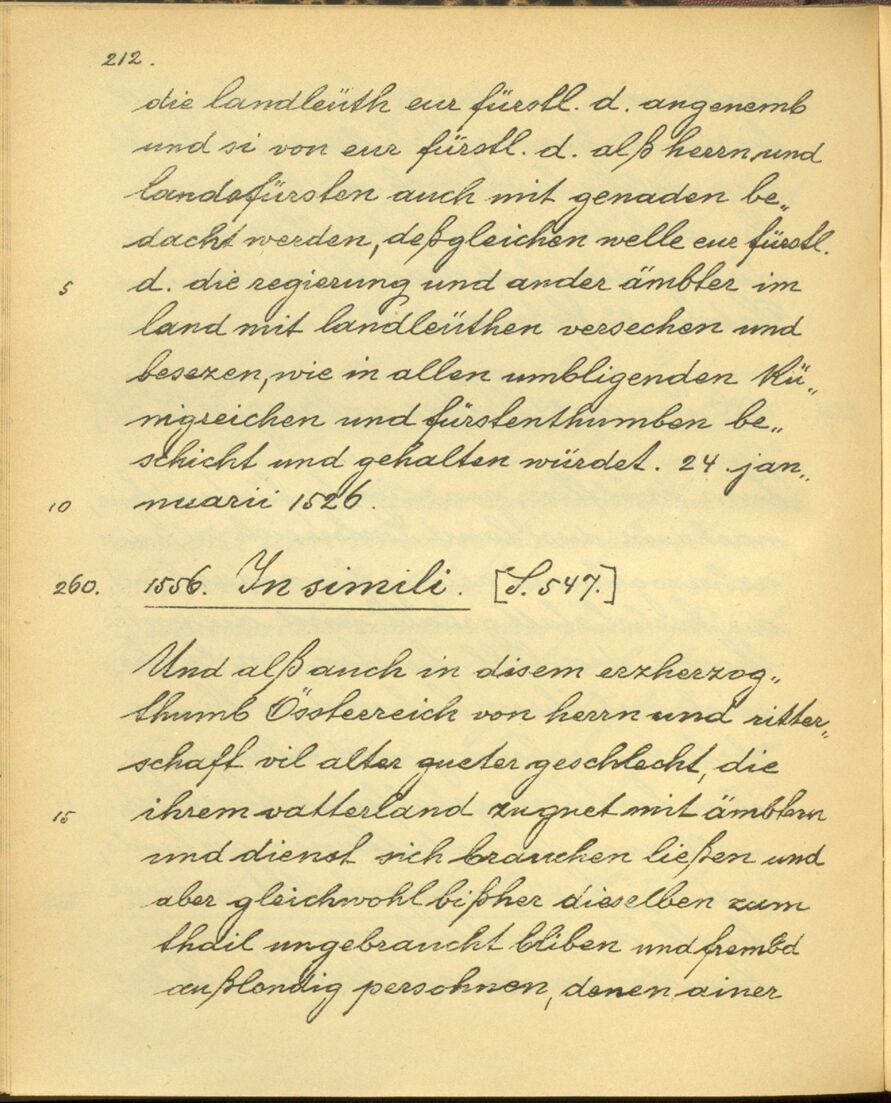 212.
die landleüth eur fürstl. d. angenemb
und si von eur fürstl. d. alß herrn und
landsfürsten auch mit genaden be„
dacht werden, deßgleichen welle eur fürstl.
5 d. die regierung und ander ämbter im
land mit landleüthen versechen und
besezen, wie in allen umbligenden Kü„
nigreichen und fürstenthumben be„
schicht und gehalten würdet. 24 jan„
10 nuarii 1526.
260. 1556. In simili. [S. 547.]
Und alß auch in disem erzherzog„
thumb Össterreich von herrn und ritter„
schaft vil alter gueter geschlecht, die
15 ihrem vatterland zuguet mit ämbtern
und dienst sich brauchen ließen und
aber gleichwohl bißher dieselben zum
thail ungebraucht bliben und frembd
außlondig persohnen, denen ainer